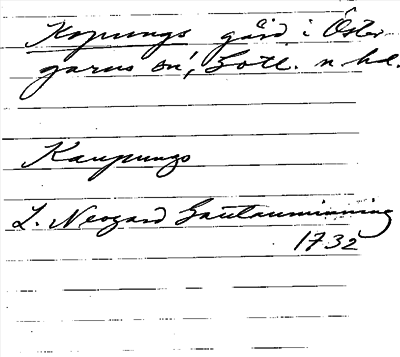 Kopungs gård i Öster
garns sn', Gotl. n hd.
Kaupungs
L. Neogard Gautauminning
1732